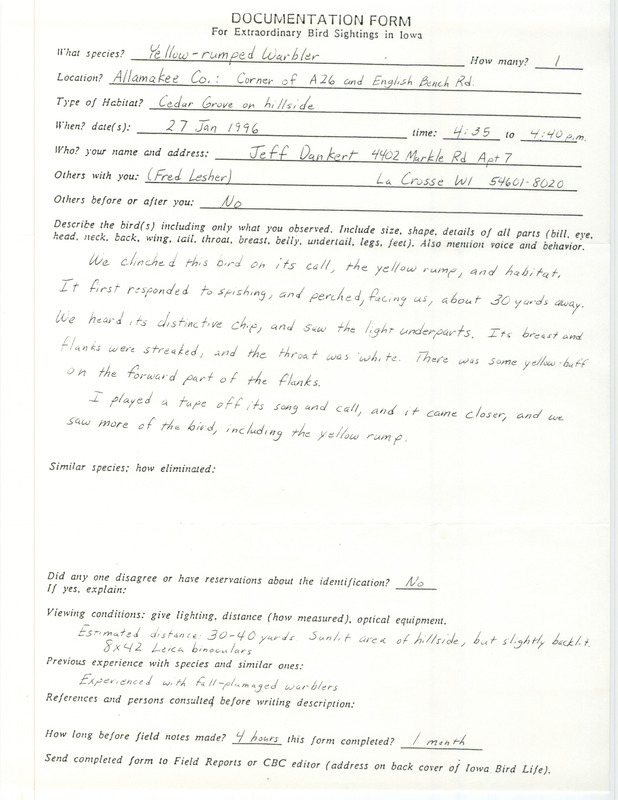 DOCUMENTATION FORM
For Extraordinary Bird Sightings in Iowa
What species? Yellow-rumped Warbler How many? 1
Location? Allamakee Co.: Corner of A26 and English Bench Rd.
Type of Habitat? Cedar Grove on hillside
When? date(s): 27 Jan 1996 time: 4:35 to 4:40 p.m.
Who? your name and address: Jeff Dankert 4402 Markle Rd Apt 7
Others with you: (Fred Lesher) La Crosse WI 54601-8020
Others before or after you: No
Describe the bird(s) including only what you observed. Include size, shape, details of all parts (bill, eye,
head, neck, back, wing, tail, throat, breast, belly, undertail, legs, feet). Also mention voice and behavior.
We clinched this bird on its call, the yellow rump, and habitat.
It first responded to spishing, and perched, facing us, about 30 yards away.
We heard its distinctive chip, and saw the light underparts. Its breast and
flanks were streaked, and the throat was white. There was some yellow-buff
on the forward part of the flanks.
I played a tape off its song and call, and it came closer, and we
saw more of the bird, including the yellow rump.
Similar species; how eliminated:
Did any one disagree or have reservations about the identification? No
If yes, explain:
Viewing conditions: give lighting, distance (how measured), optical equipment.
Estimated distance: 30-40 yards. Sunlit area of hillside, but slightly backlit.
8x42 Leica binoculars
Previous experience with species and similar ones:
Experienced with fall-plumaged warblers
References and persons consulted before writing description:
How long before field notes made? 4 hours this form completed? 1 month
Send completed form to Field Reports or CBC editor (address on back cover of Iowa Bird Life).